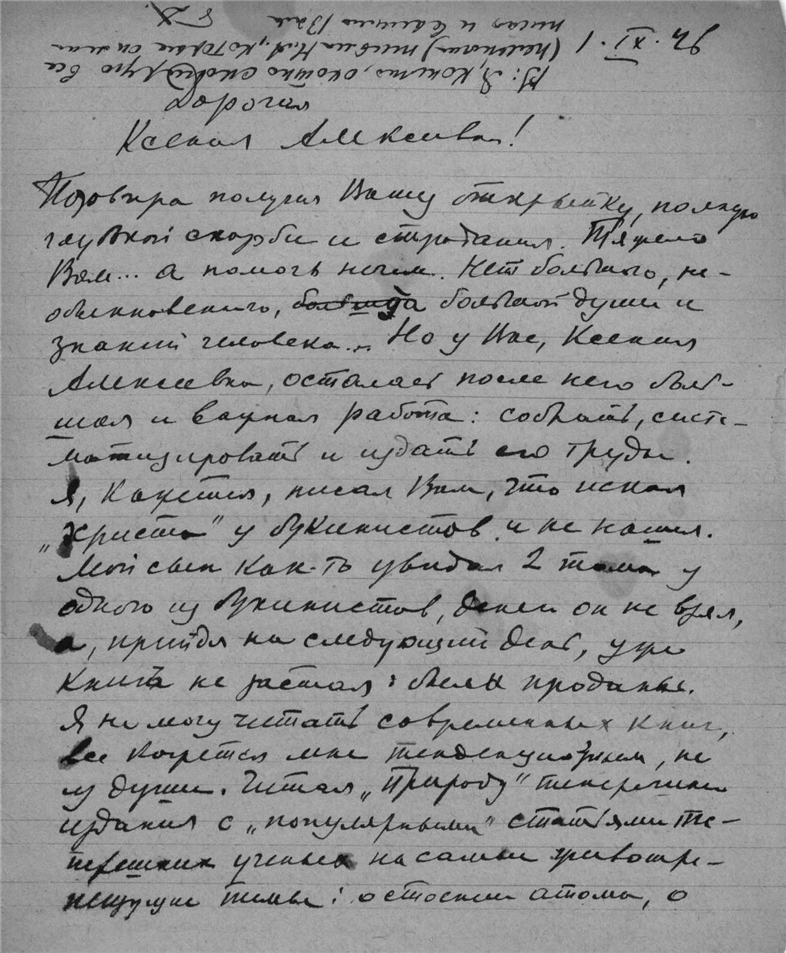 1. XI. 46
Дорогая
Ксения Алексеевна!
Позавчера получил Вашу открытку, полную
глубокой скорби и страдания. Тяжело
Вам... а помочь нечем. Нет большого, не-
обыкновенного, большой души и
знаний человека... Но у Вас, Ксения
Алексеевна, осталась после него боль-
шая и важная работа: собрать, систе-
матизировать и издать его труды.
Я, кажется, писал Вам, что искал
„Христа" у букинистов и не нашел.
Мой сын как-то увидал 2 тома у
одного из букинистов, денег он не взял,
а, придя на следующий день, уже
книги не застал: были проданы.
Я не могу читать современных книг,
все кажется мне тенденциозным, не
из души. Читал „Природу" теперешнего
издания с „популярными" статьями те-
перешних ученых на самые животре-
пещущие темы: о строении атома, о
P.S: Я, конечно, охотно скопирую все
(неленого) письма Н.А., которые он мне
писал и вышлю Вам